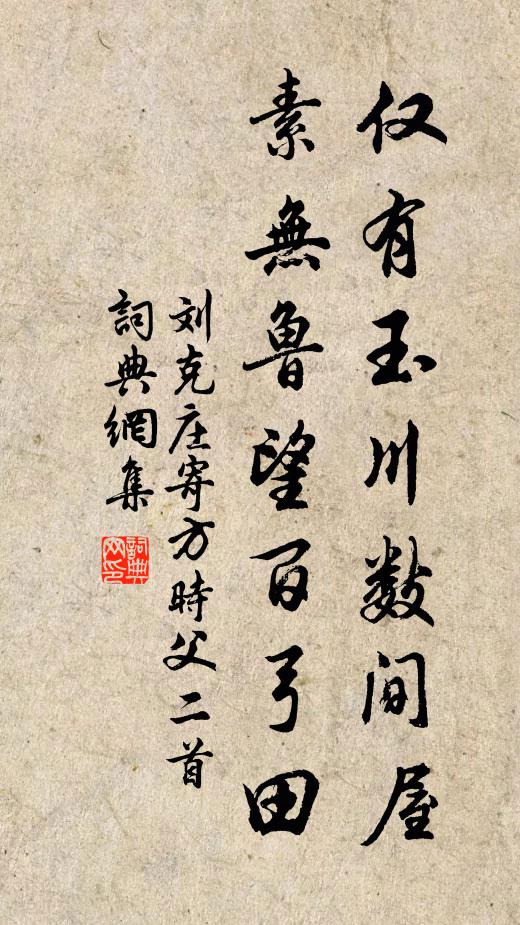 仅有玉川数间屋
素無魯望百弓田
刘克庄寄方時父二首
詞典網集
詞典
网印